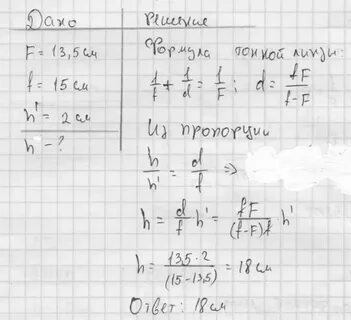 Дано
F = 13,5 см
f = 15 см
h' = 2 см
h - ?
Решение
Формула тонкой линзы:
1/f + 1/d = 1/F ; d = fF/(f-F)
Из пропорции
h/h' = d/f =>
h = d/f h' = fF/((f-F)f) h'
h = 13,5·2/(15-13,5) = 18 см
Ответ: 18 см